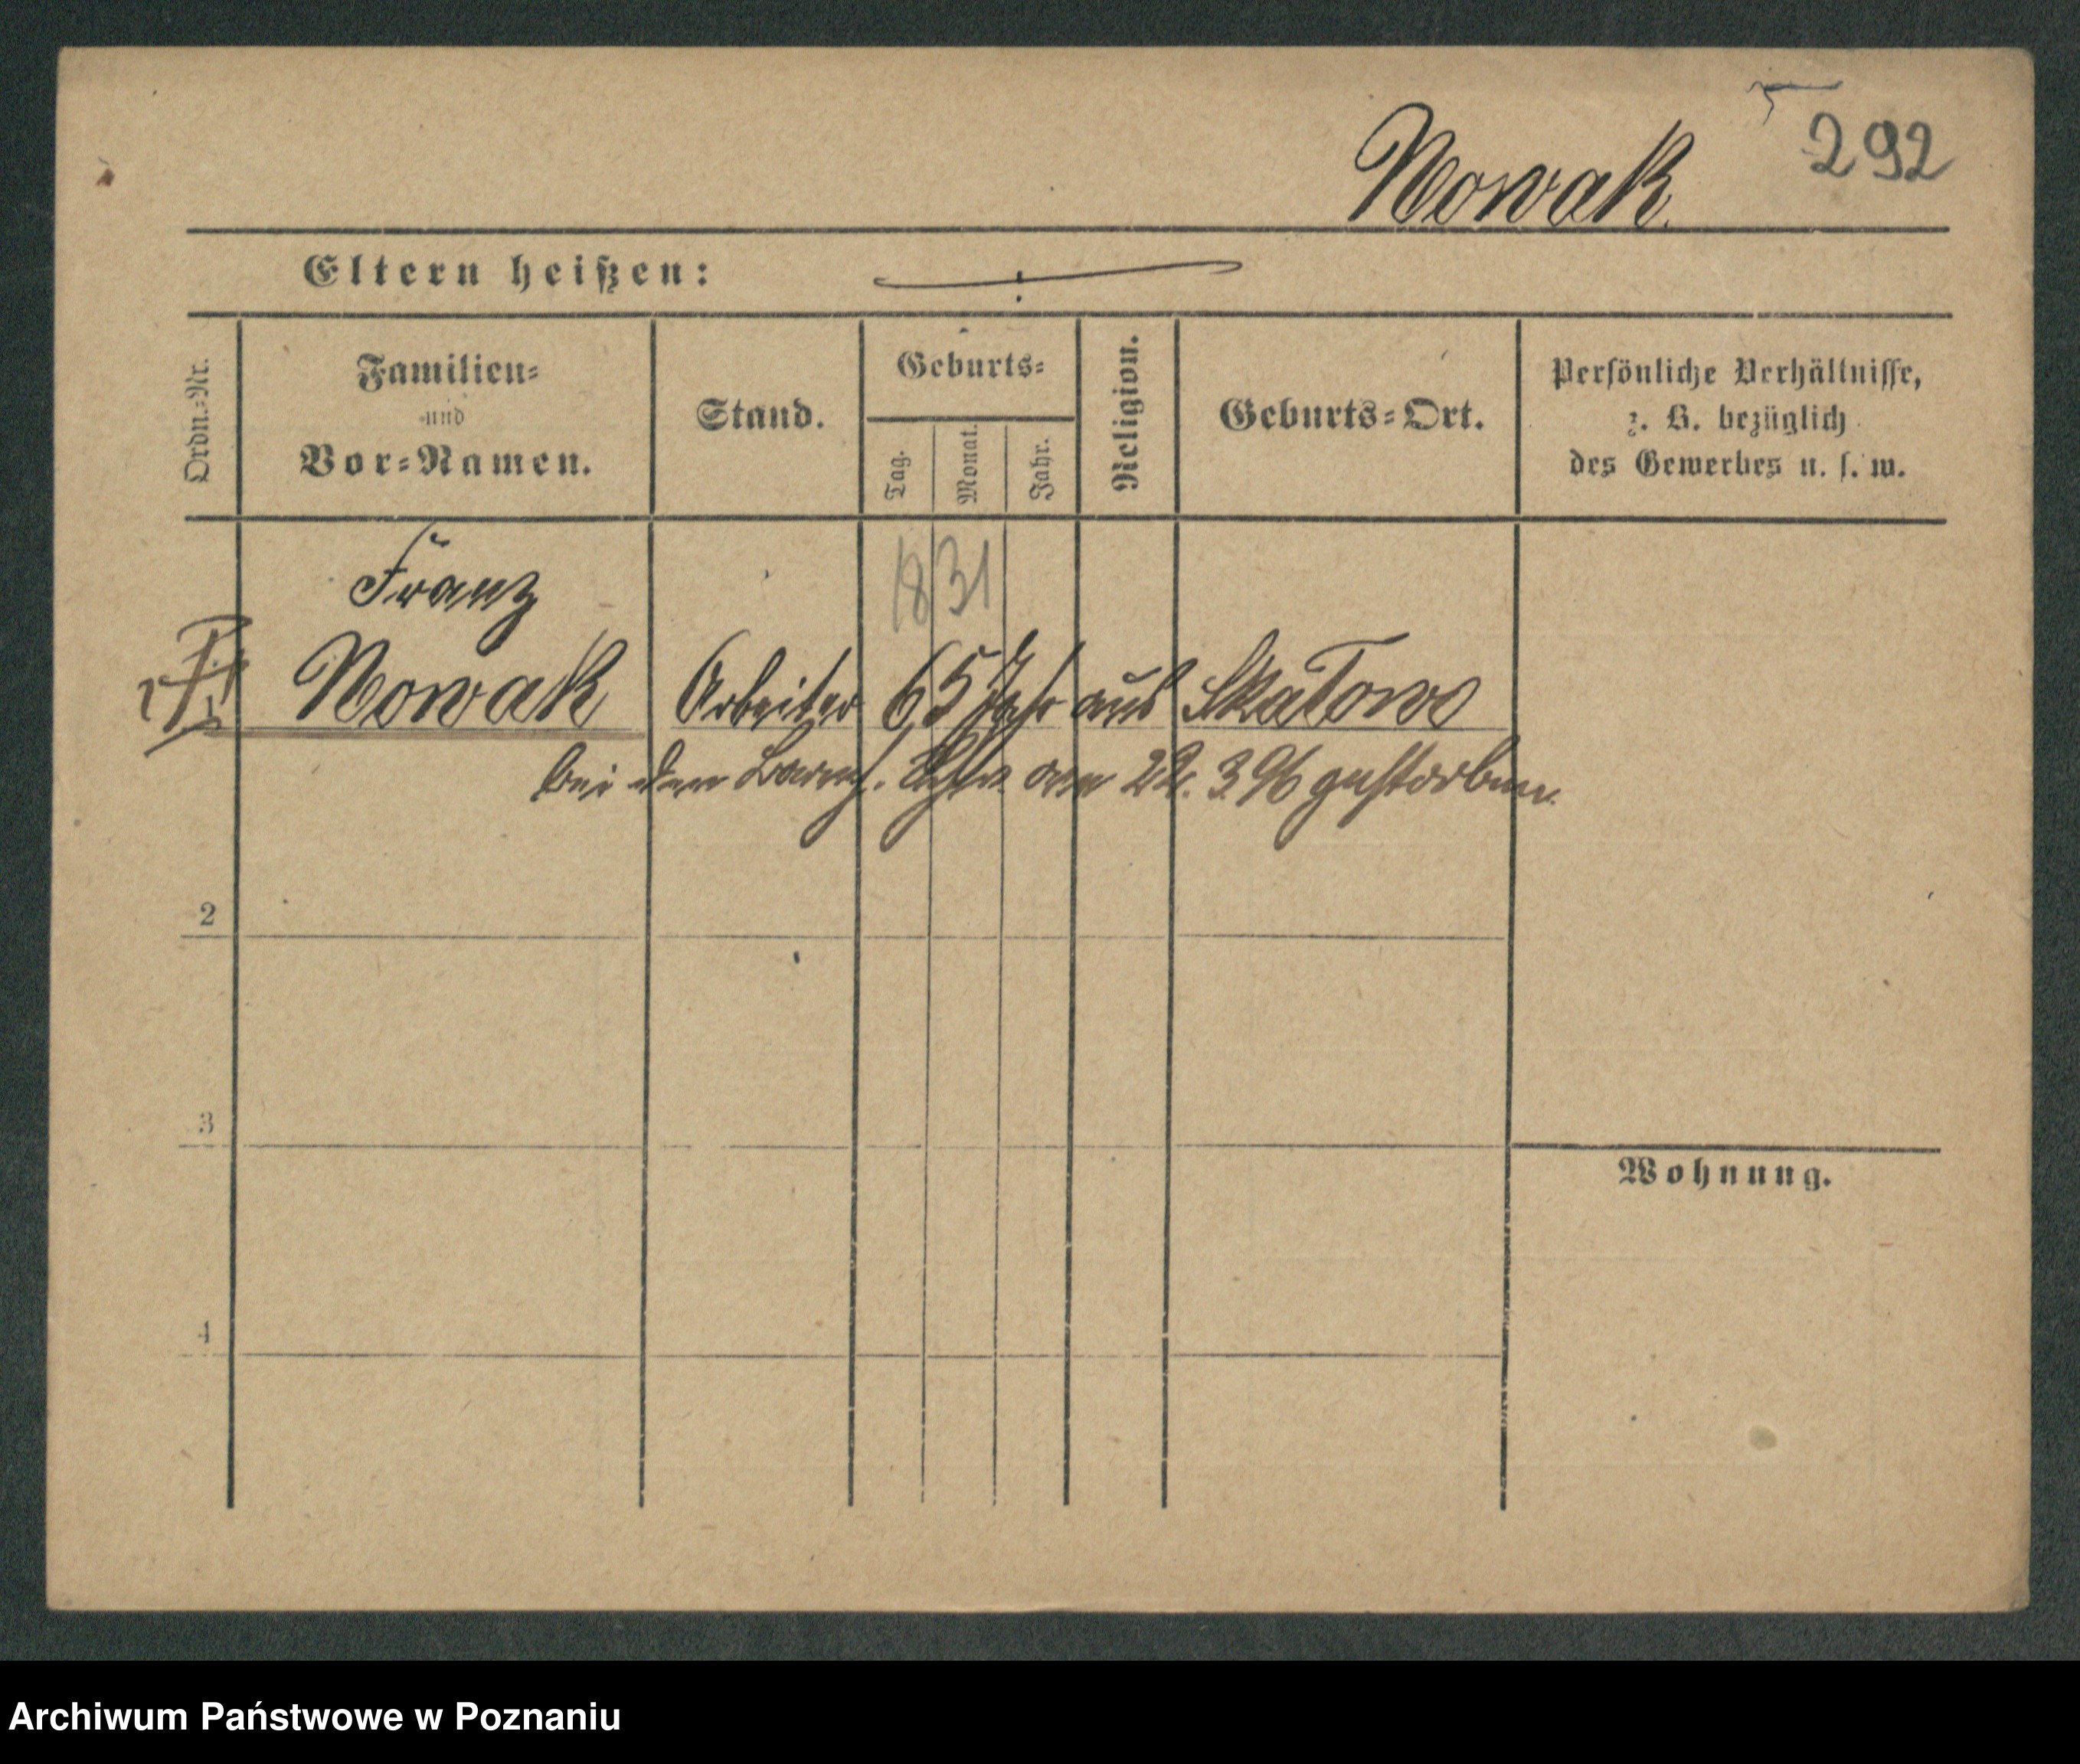 292
Nowak.
Eltern heißen:
Ordn.-Nr.
Familien-
und
Vor-Namen.
Stand.
Geburts-
Tag.
Monat.
Jahr.
Religion.
Geburts-Ort.
Persönliche Verhältnisse,
z. B. bezüglich
des Gewerbes u. s. w.
Franz
1831
Nowak Arbeiter 65 Jahr aus Skałowo
bei den Barmh. Schw. am 22. 3. 96 gestorben.
2
3
Wohnung.
4
Archiwum Państwowe w Poznaniu